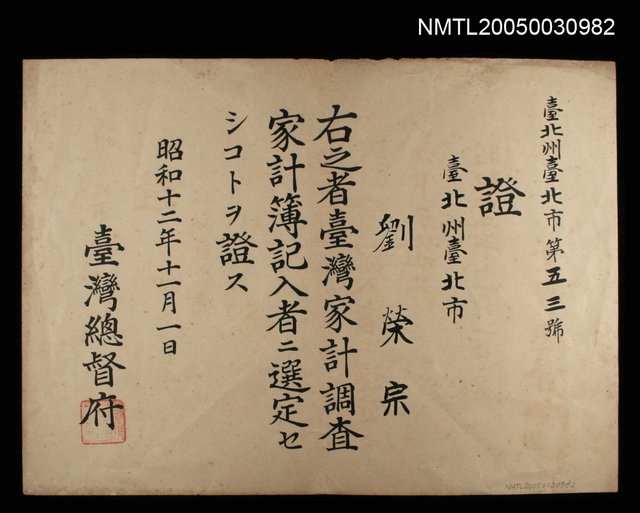 NMTL20050030982
臺北州臺北市第五三號
證
臺北州臺北市
劉榮宗
右之者臺灣家計調査
家計簿記入者ニ選定セ
シコトヲ證ス
昭和十二年十一月一日
臺灣總督府
NMTL20050030982